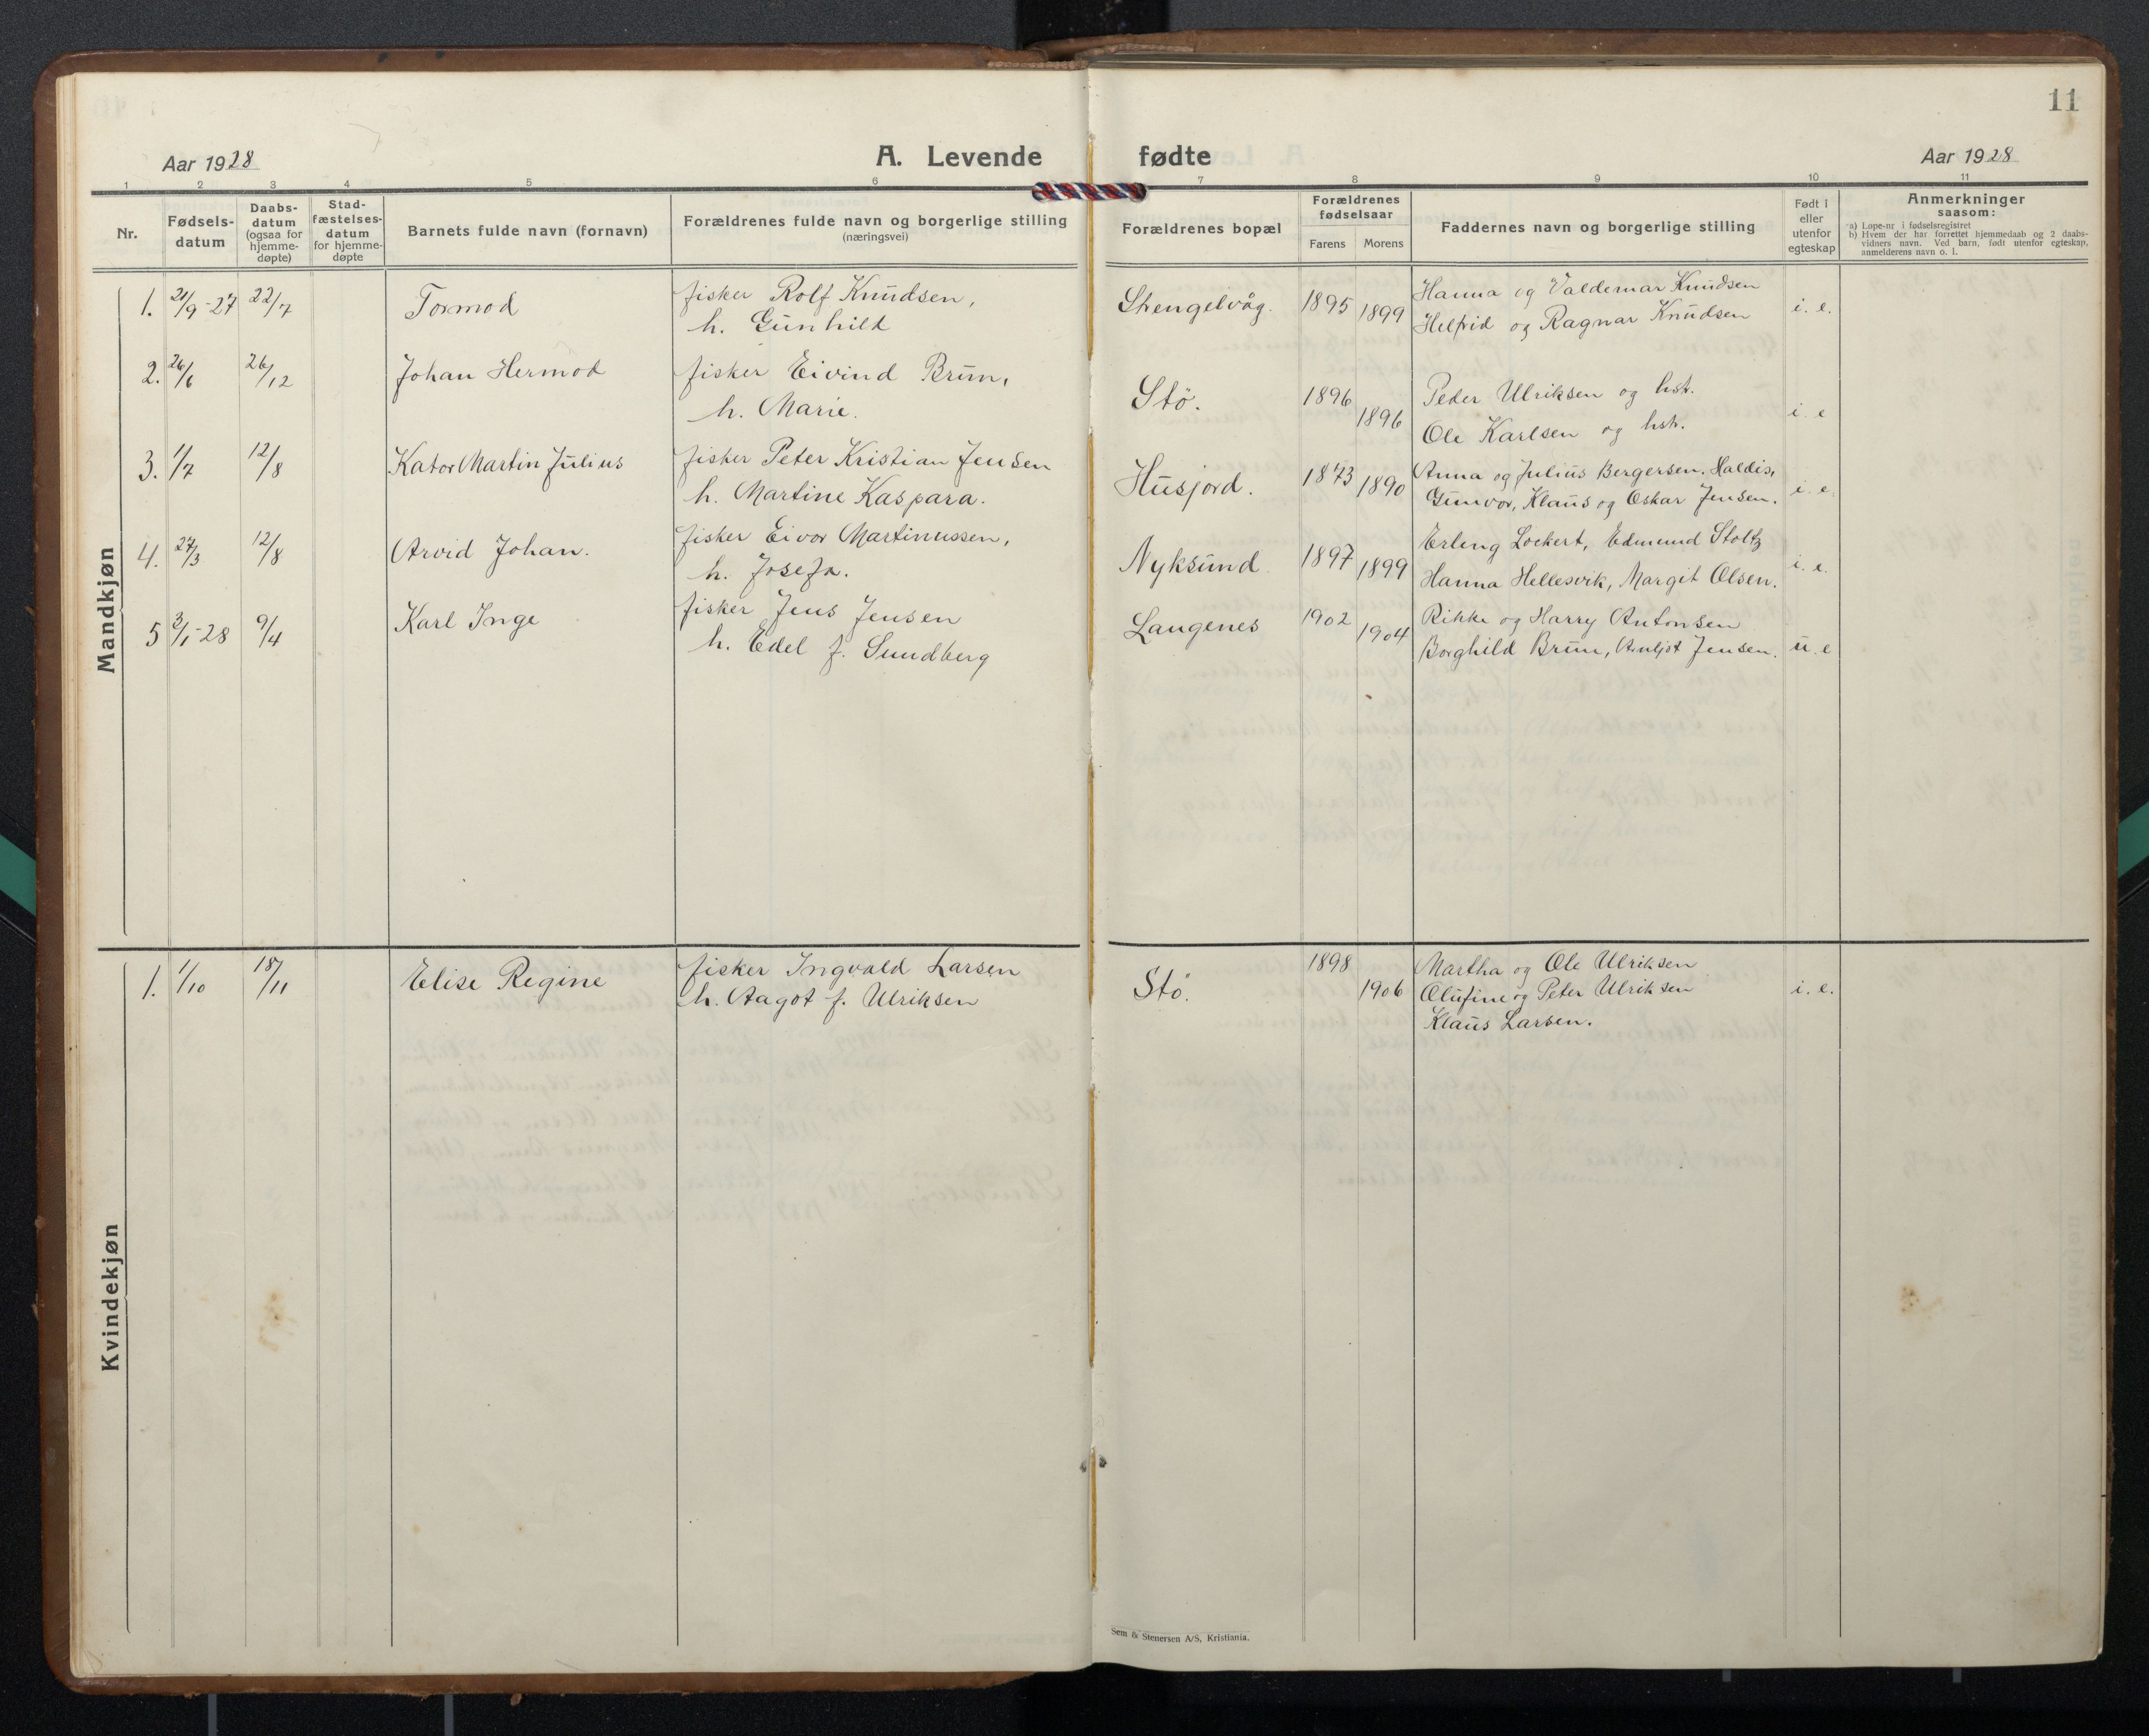 11
Aar 1928
A. Levende
fødte
Aar 1928
1 2 3 4 5 6 7 8 9 10 11
Nr.
Fødsels-
datum
Daabs-
datum
(ogsaa for
hjemme-
døpte)
Stad-
fæstelses-
datum
for hjemme-
døpte
Barnets fulde navn (fornavn)
Forældrenes fulde navn og borgerlige stilling
(næringsvei)
Forældrenes bopæl
Forældrenes
fødselsaar
Farens Morens
Faddernes navn og borgerlige stilling
Født i
eller
utenfor
egteskap
Anmerkninger
saasom:
a) Løpe-nr i fødselsregistret
b) Hvem der har forrettet hjemmedaab og 2 daabs-
vidners navn. Ved barn, født utenfor egteskap,
anmelderens navn o. l.
Mandkjøn
1. 21/9-27 22/7 Tormod fisker Rolf Knudsen, Strengelvåg. 1895 Hanna og Valdemar Knudsen
h. Gunhild 1899 Helfrid og Ragnar Knudsen i. e.
2. 26/6 26/12 Johan Hermod fisker Eivind Brun, Stö. 1896 Peder Ulriksen og hst.
h. Marie. 1896 Ole Karlsen og hst. i. e
3. 1/7 12/8 Kator Martin Julius fisker Peter Kristian Jensen Husjord. 1873 Anna og Julius Bergersen. Haldis,
h. Martine Kaspara. 1890 Gunvor, Klaus og Oskar Jensen. i. e.
4. 27/3 12/8 Arvid Johan. fisker Eivor Martinussen, Nyksund. 1897 Erling Lockert, Edmund Stoltz
h. Josefa. 1899 Hanna Hellesvik, Margit Olsen. i. e.
5 3/1-28 9/4 Karl Inge fisker Jens Jensen Langenes 1902 Rikke og Harry Antonsen
h. Edel f. Sundberg 1904 Borghild Brun, Arnljot Jensen. u. e
Kvindekjøn
1. 1/10 18/11 Elise Regine fisker Ingvald Larsen Stö. 1898 Martha og Ole Ulriksen
h. Aagot f. Ulriksen 1906 Olufine og Peter Ulriksen i. e.
Klaus Larsen.
Sem & Stenersen A/S, Kristiania.